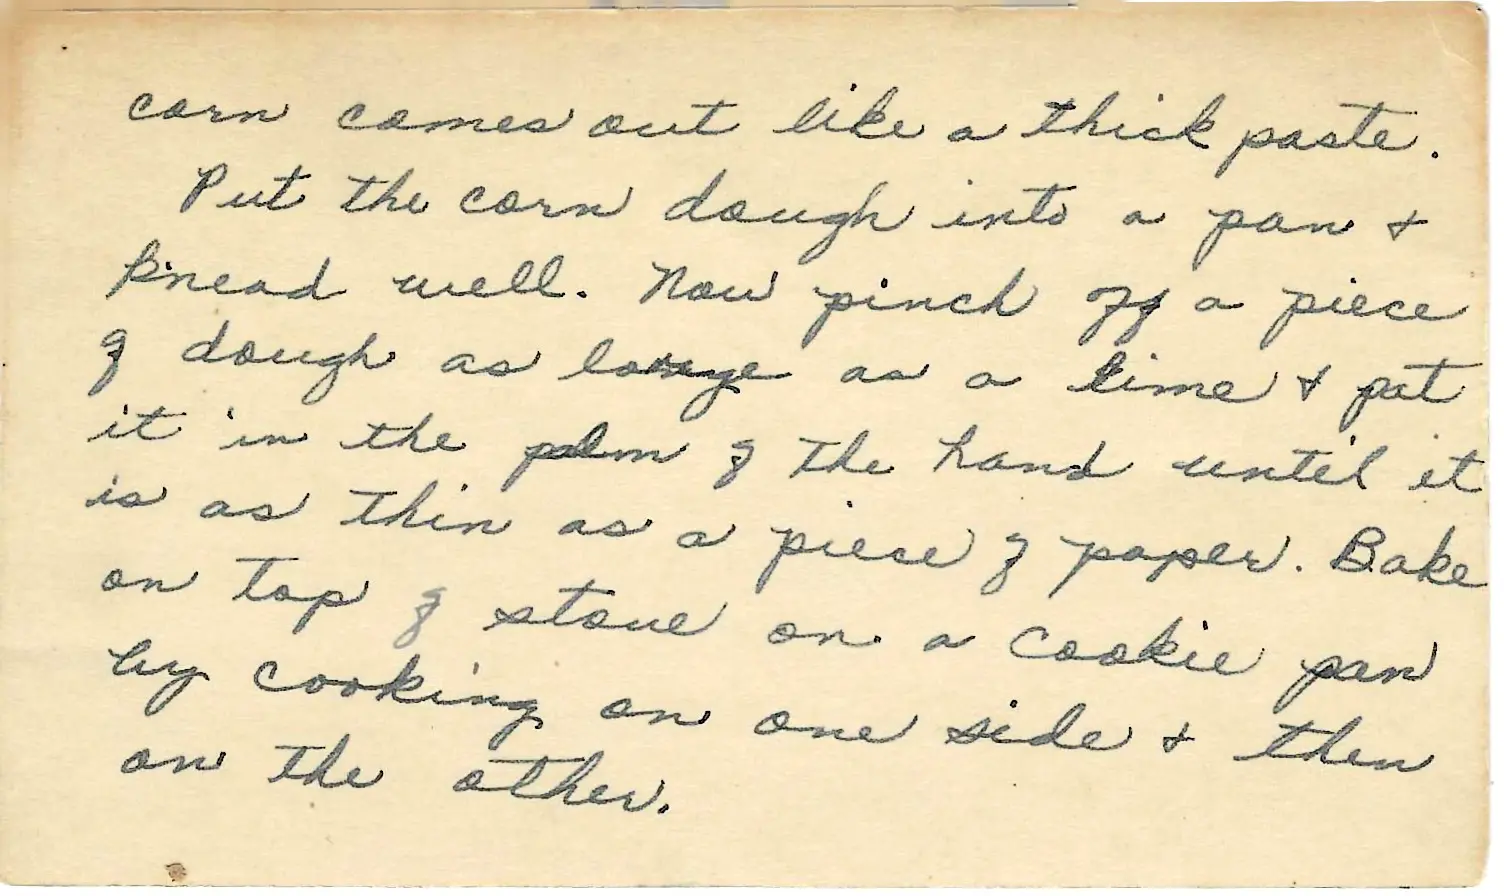 corn comes out like a thick paste.
Put the corn dough into a pan &
knead well. Now pinch off a piece
of dough as large as a lime & pat
it in the palm of the hand until it
is as thin as a piece of paper. Bake
on top of stove on a cookie pan
by cooking on one side & then
on the other.